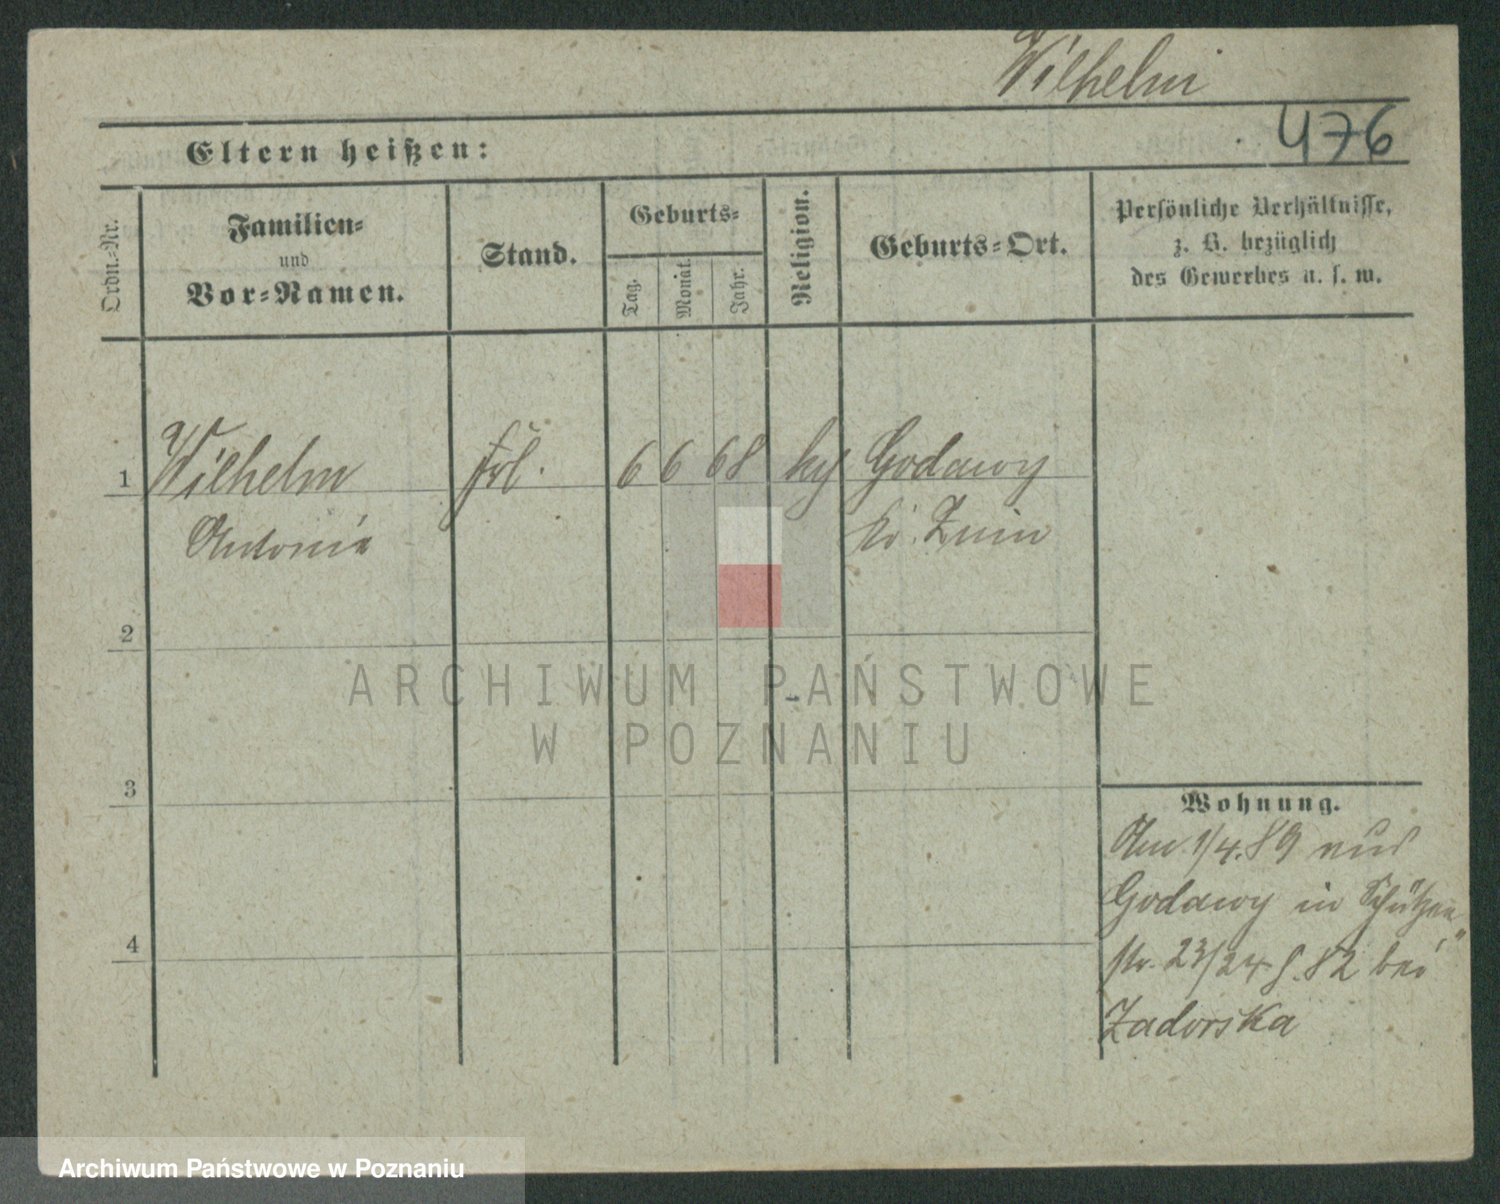 Wilhelm
476
Eltern heißen:
Ordn.-Nr.
Familien-
und
Vor-Namen.
Stand.
Geburts-
Tag.
Monat.
Jahr.
Religion.
Geburts-Ort.
Persönliche Verhältnisse,
z. B. bezüglich
des Gewerbes u. s. w.
1 Wilhelm frl. 6 6 68 Godawy
Antonie Kr. Znin
2
3
4
Wohnung.
Am 1/4. 89 aus
Godawy in Schützen"
str. 23/24 82 bei
Zadorska
ARCHIWUM PAŃSTWOWE
W POZNANIU
Archiwum Państwowe w Poznaniu